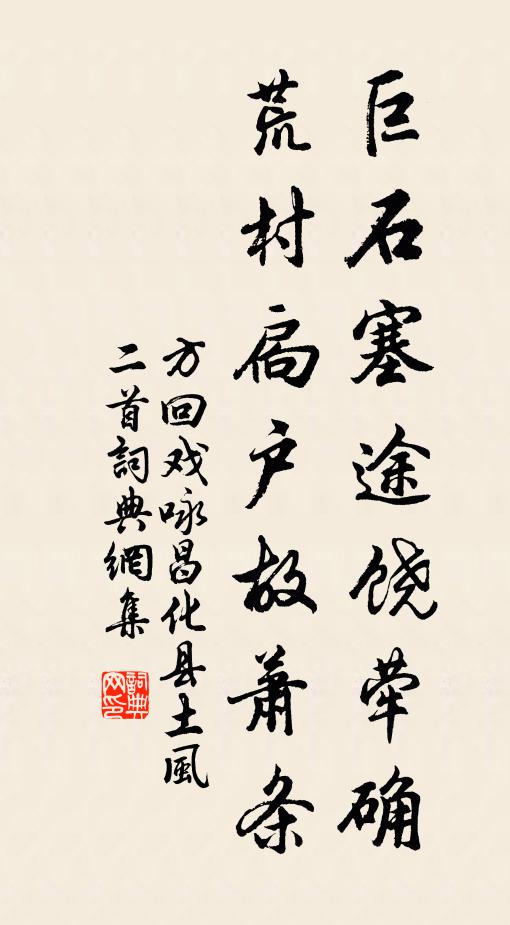 巨石塞途饶荦确
荒村扃户故萧条
方回戏咏昌化县土風
二首詞典網集
詞典
网印